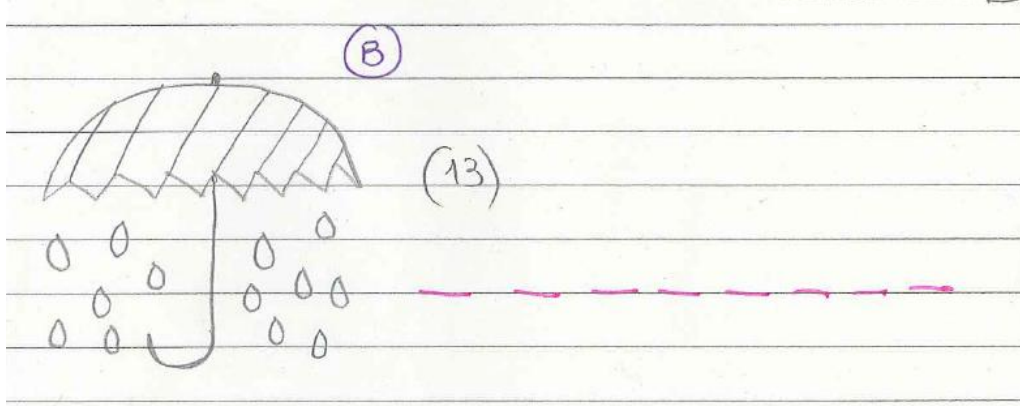 B
(13)